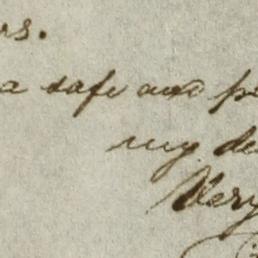 rs.
a safe and p
my de
Very